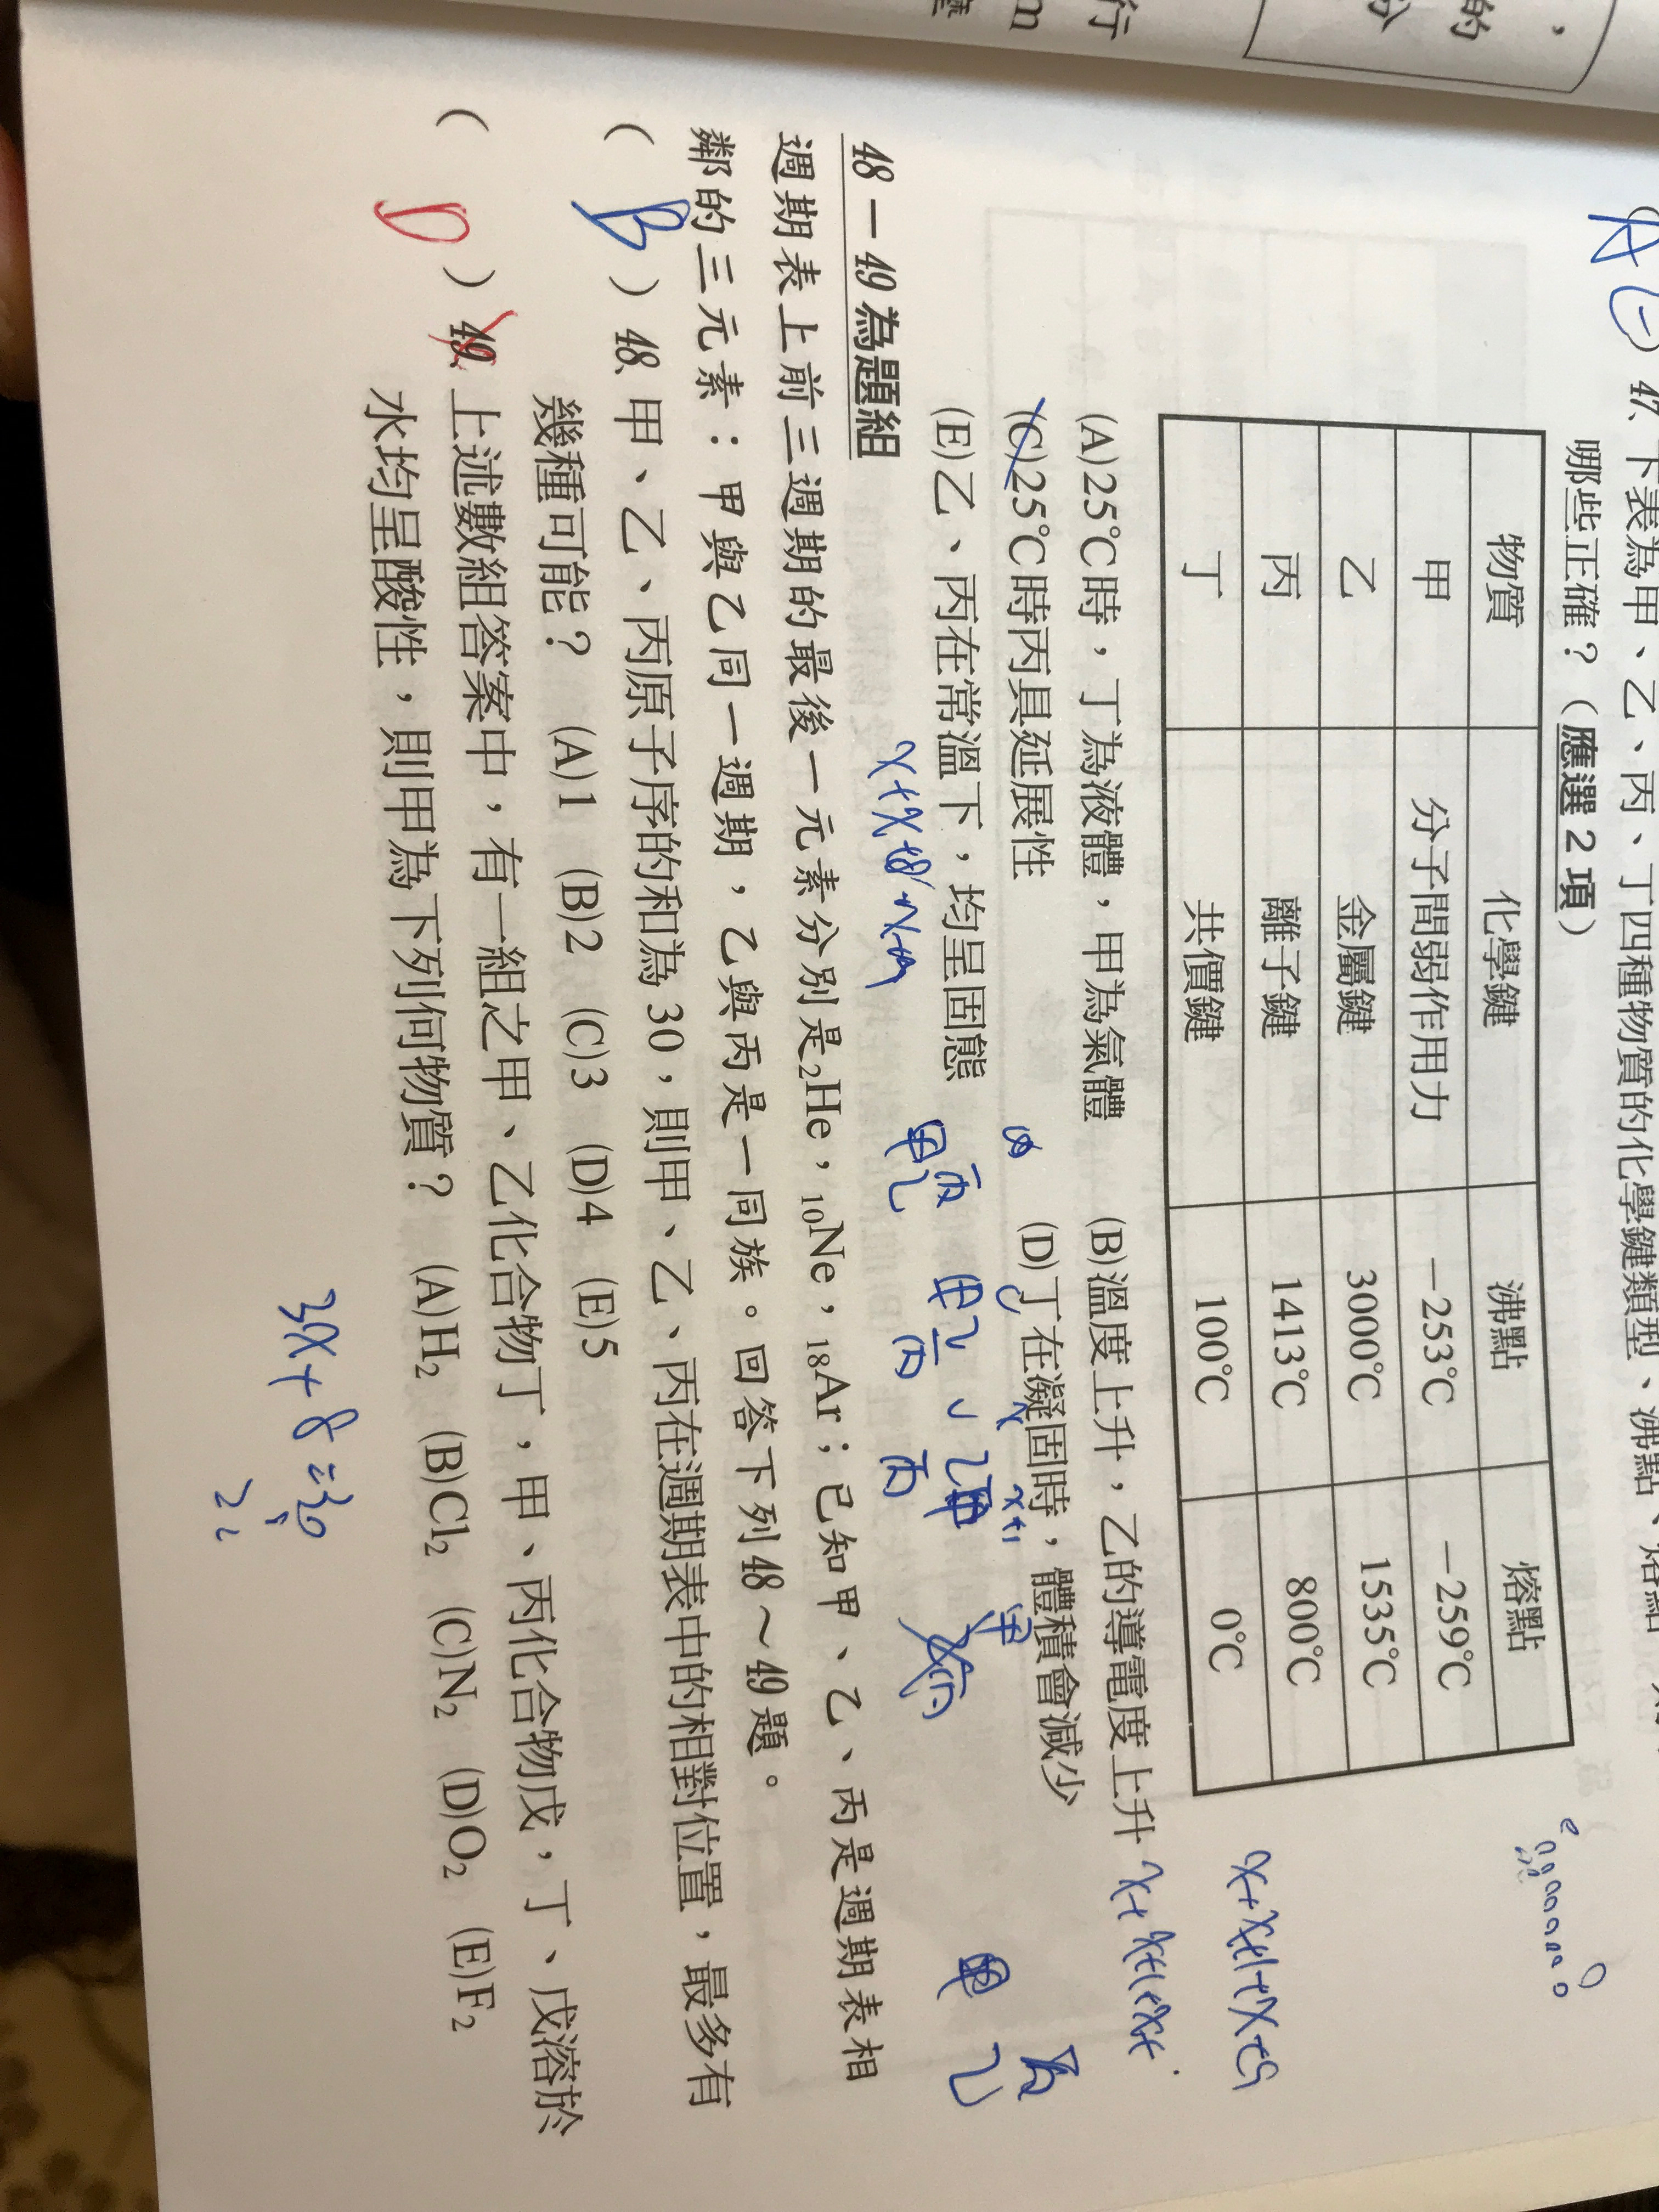 47. 下表為甲、乙、丙、丁四種物質的化學鍵類型、沸點、熔點
哪些正確？（應選2項）
物質 化學鍵 沸點 熔點
甲 分子間弱作用力 －253℃ －259℃
乙 金屬鍵 3000℃ 1535℃
丙 離子鍵 1413℃ 800℃
丁 共價鍵 100℃ 0℃
(A)25℃時，丁為液體，甲為氣體 (B)溫度上升，乙的導電度上升
(C)25℃時丙具延展性 (D)丁在凝固時，體積會減少
(E)乙、丙在常溫下，均呈固態
48－49為題組
週期表上前三週期的最後一元素分別是₂He，₁₀Ne，₁₈Ar；已知甲、乙、丙是週期表相
鄰的三元素：甲與乙同一週期，乙與丙是一同族。回答下列48～49題。
( B ) 48. 甲、乙、丙原子序的和為30，則甲、乙、丙在週期表中的相對位置，最多有
幾種可能？ (A)1 (B)2 (C)3 (D)4 (E)5
( D ) 49. 上述數組答案中，有一組之甲、乙化合物丁，甲、丙化合物戊，丁、戊溶於
水均呈酸性，則甲為下列何物質？ (A)H₂ (B)Cl₂ (C)N₂ (D)O₂ (E)F₂
3x+8=30
22